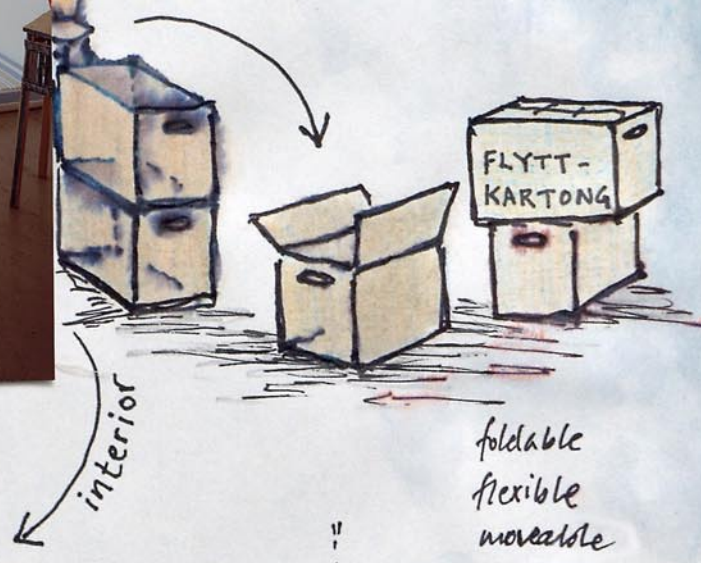 FLYTT-
KARTONG
interior
foldable
flexible
moveable